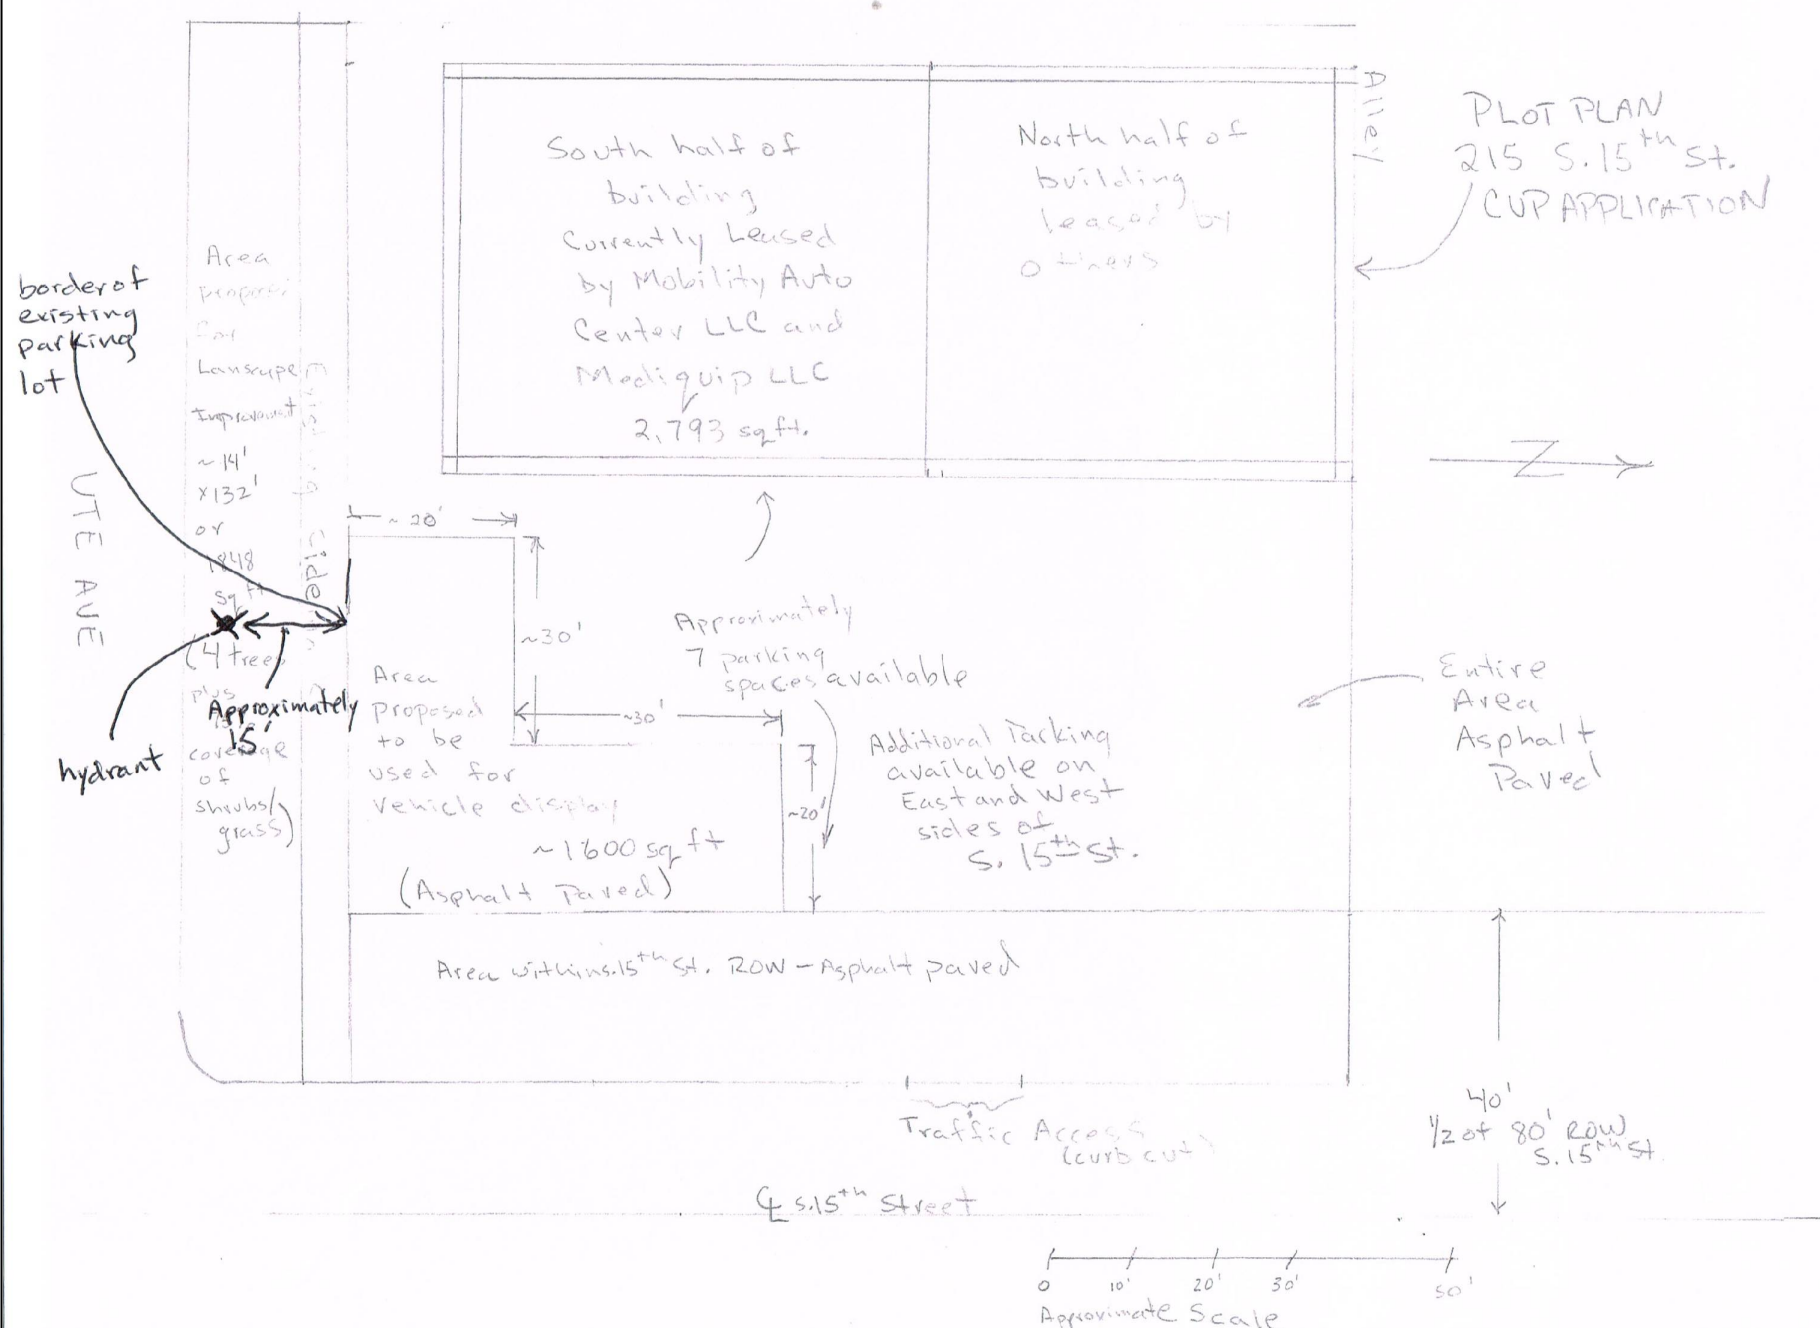 PLOT PLAN
215 S. 15th St.
CUP APPLICATION
Alley
South half of
building
Currently Leased
by Mobility Auto
Center LLC and
Mediquip LLC
2,793 sq ft.
North half of
building
leased by
others
border of
existing
parking
lot
Area
for
Lanscrape
Improvement
~14'
x132'
or
1848
sq ft
(4 trees
plus
coverage
of
shrubs/
grass)
Existing Side
UTE AVE
hydrant
Approximately
15'
~20'
~30'
~30'
~20'
Area
proposed
to be
used for
vehicle display
~1600 sq ft
(Asphalt Paved)
Approximately
7 parking
spaces available
Additional Parking
available on
East and West
sides of
S. 15th St.
Z
Entire
Area
Asphalt
Paved
Area within S. 15th St. ROW - Asphalt paved
Traffic Access
(curb cut)
40'
1/2 of 80' ROW
S. 15th St.
CL S. 15th Street
0 10' 20' 30' 50'
Approximate Scale